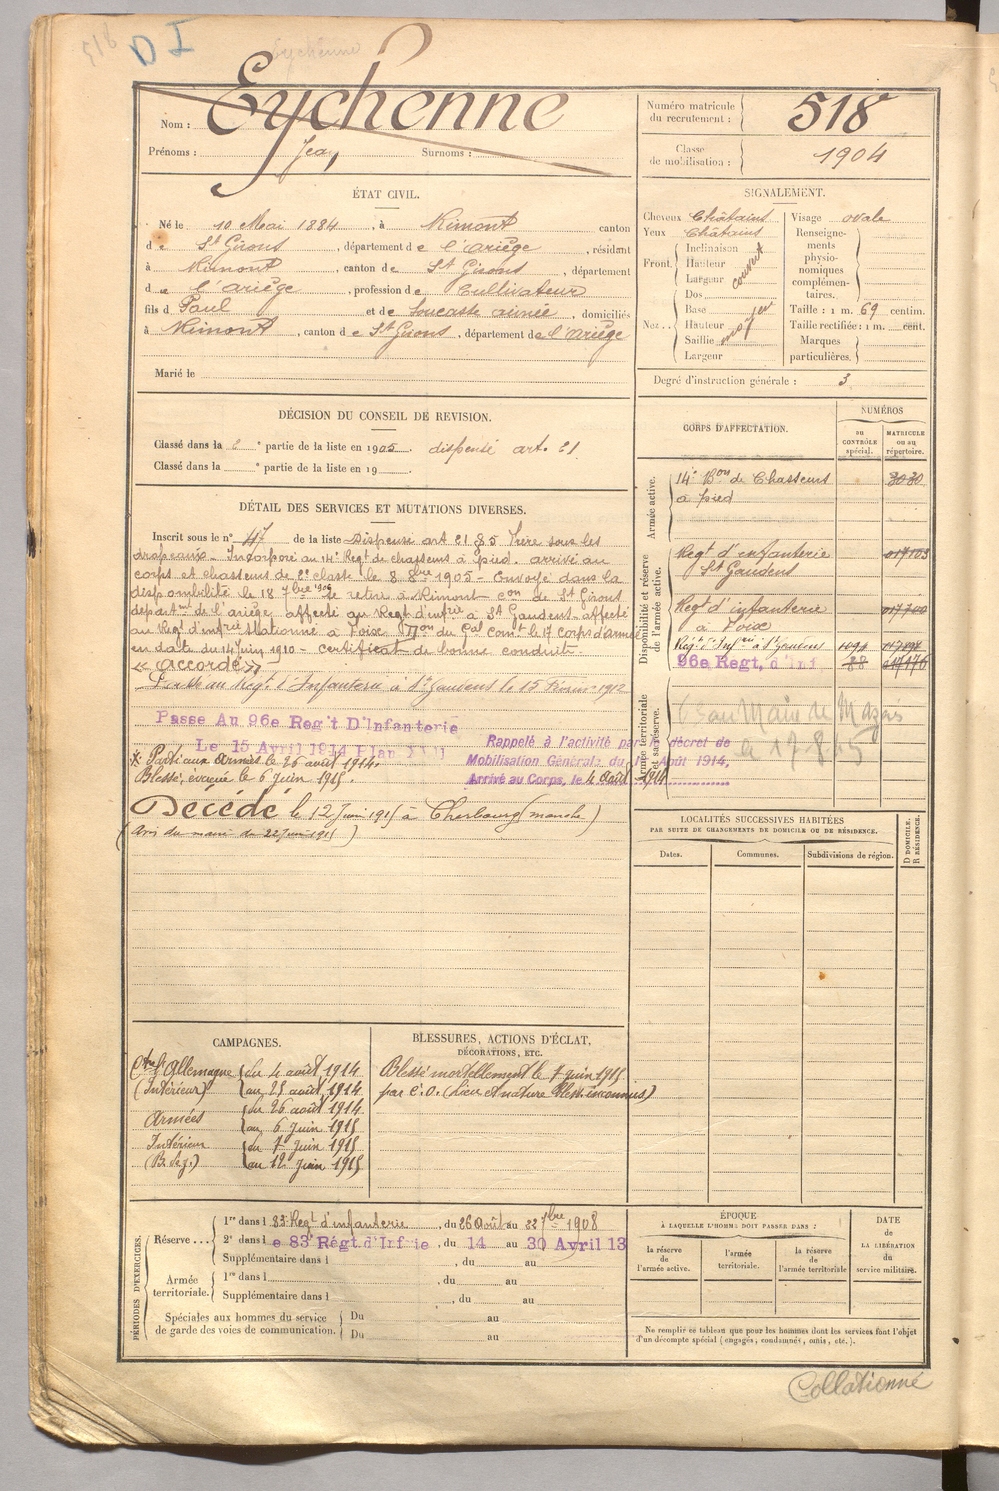 518
D I
Eychenne
Nom : Eychenne
Prénoms : Jean Surnoms :
Numéro matricule du recrutement : 518
Classe de mobilisation : 1904
ÉTAT CIVIL.
Né le 10 Mai 1884, à Rimont canton
de St Girons, département de l'Ariège, résidant
à Rimont, canton de St Girons, département
de l'ariège, profession de Cultivateur
fils d Paul et de Soucasse aimée, domiciliés
à Rimont, canton de St Girons, département de l'ariège
Marié le
SIGNALEMENT.
Cheveux Châtains
Yeux Châtains
Front. Inclinaison
Hauteur
Largeur couvert
Nez.. Dos
Base
Hauteur moy
Saillie
Largeur
Visage ovale
Renseignements physionomiques complémentaires.
Taille : 1 m. 69 centim.
Taille rectifiée : 1 m. cent.
Marques particulières.
Degré d'instruction générale : 3
DÉCISION DU CONSEIL DE REVISION.
Classé dans la 2 e partie de la liste en 1905. dispensé art. 21
Classé dans la e partie de la liste en 19
DÉTAIL DES SERVICES ET MUTATIONS DIVERSES.
Inscrit sous le n° 47 de la liste Dispensé art 21 § 5 Frère sous les
drapeaux - Incorporé au 14e Regt de chasseurs à pied. arrivé au
corps et chasseur de 2e classe le 8 8bre 1905 - Envoyé dans la
disponibilité le 18 7bre 1906 se retire à Rimont con de St Girons
départmt de l'ariège affecté au Regt d'infrie à St Gaudens - affecté
au Regt d'infrie stationné à Foix Don du Gal Comt le 17 Corps d'armée
en date du 14 Juin 1910 - certificat de bonne conduite
« Accordé »
Passé au Regt d'Infanterie à St Gaudens le 15 Février 1912
Passe Au 96e Reg't D'Infanterie
Le 15 Avril 1914 Plan XVII
Rappelé à l'activité par décret de
Mobilisation Générale du 1 Août 1914,
Arrivé au Corps, le 4 Août 1914
* Parti aux Armées le 26 août 1914
Blessé, évacué le 6 juin 1915.
Décédé le 12 Juin 1915 à Cherbourg (manche)
(Avis du maire du 22 juin 1915)
CORPS D'AFFECTATION.
NUMÉROS
au CONTRÔLE spécial.
MATRICULE ou au répertoire.
Armée active.
14e Bon de Chasseurs 3030
à pied
Disponibilité et réserve de l'armée active.
Regt d'infanterie 017103
St Gaudens
Regt d'infanterie 017700
à Foix
Régt d'Infrie à St Gaudens 1094
96e Regt, d'Inf 88
Armée territoriale et sa réserve.
LOCALITÉS SUCCESSIVES HABITÉES
PAR SUITE DE CHANGEMENTS DE DOMICILE OU DE RÉSIDENCE.
Dates. Communes. Subdivisions de région. D DOMICILE. R RÉSIDENCE.
CAMPAGNES.
Ctre l'Allemagne du 4 août 1914
(Intérieur) au 25 août 1914
Armées du 26 août 1914
au 6 juin 1915
Intérieur du 7 juin 1915
(B. de g.) au 12 juin 1915
BLESSURES, ACTIONS D'ÉCLAT,
DÉCORATIONS, ETC.
Blessé mortellement le 7 juin 1915
par é. o. (Lieu et nature Bless. inconnus)
PÉRIODES D'EXERCICES.
Réserve... 1re dans l 83e Regt d'infanterie, du 26 Août au 22 7bre 1908
2e dans l e 83e Régt.d'Infie, du 14 au 30 Avril 13
Supplémentaire dans l , du au
Armée territoriale. 1re dans l , du au
Supplémentaire dans l , du au
Spéciales aux hommes du service de garde des voies de communication. Du au
Du au
ÉPOQUE
À LAQUELLE L'HOMME DOIT PASSER DANS :
la réserve de l'armée active.
l'armée territoriale.
la réserve de l'armée territoriale
DATE DE LA LIBÉRATION du service militaire.
Ne remplir ce tableau que pour les hommes dont les services font l'objet
d'un décompte spécial (engagés, condamnés, omis, etc.).
Collationné